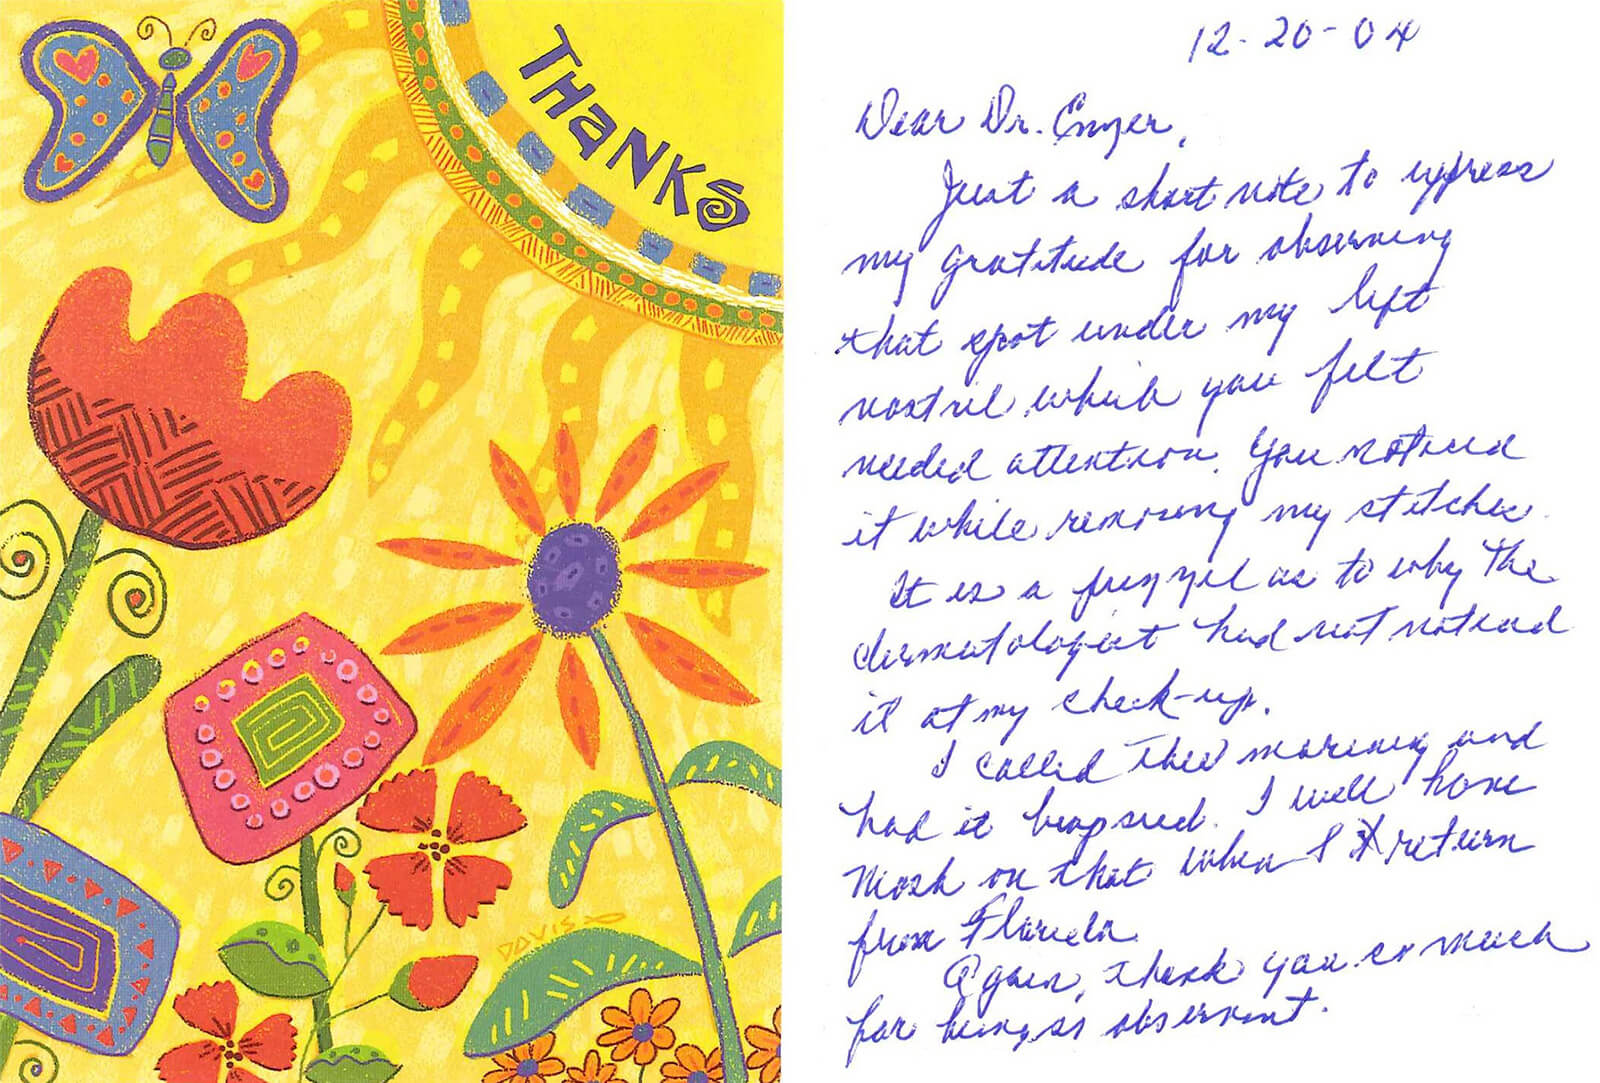 THANKS
DAVIS
12-20-04
Dear Dr. Enzer,
Just a short note to express
my gratitude for observing
that spot under my left
nostril which you felt
needed attention. You noticed
it while removing my stitches.
It is a puzzel as to why the
dermatologist had not noticed
it at my check-up.
I called this morning and
had it biopsied. I will have
Mosh on that when I return
from Florida.
Again, thank you so much
for being so observant.